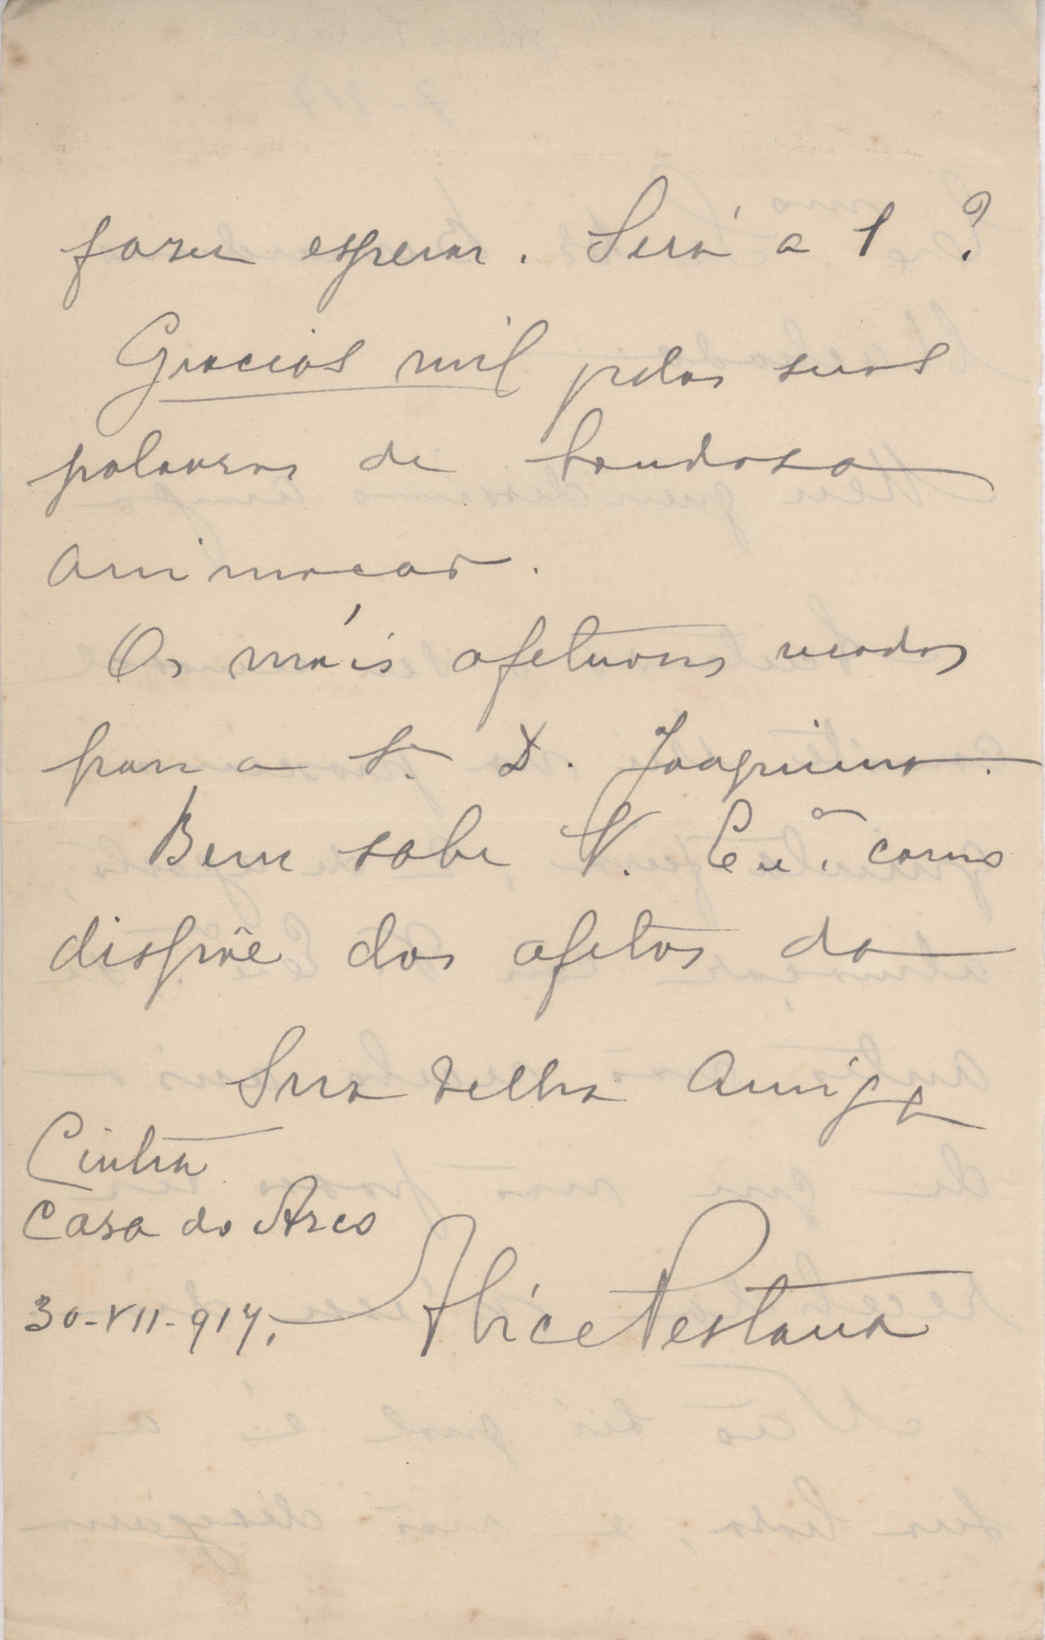 fazer esperar. Será a 1 ?
Gracias mil pelas suas
palavras de bondosa
animacao.
Os máis afetuosos
para a Sr.ª D. Joaquina.
Bem sabe V. Ex.ª como
dispõe dos afetos da
Sua velha amiga
Cintra
Casa do Arco
30-VII-917.
Alice Pestana